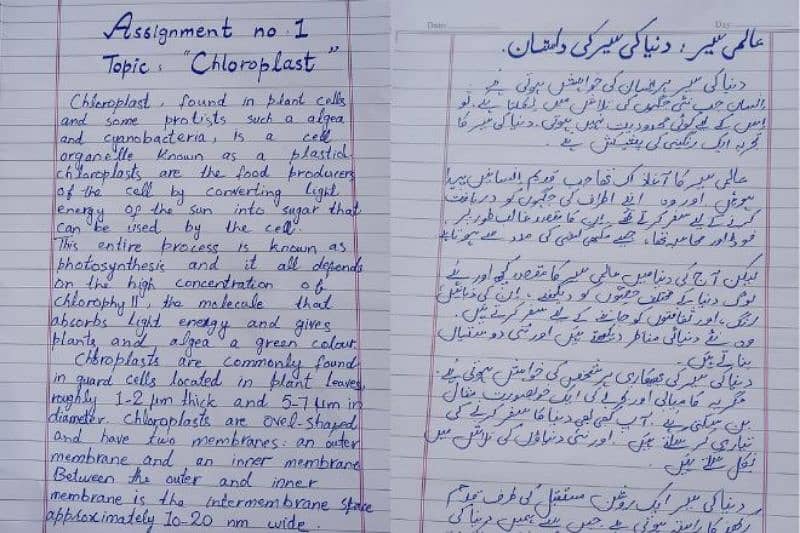 Assignment no. 1
Topic: "Chloroplast"
Chloroplast, found in plant cells
and some protists such a algea
and cyanobacteria, is a cell
organelle known as a plastid.
chloroplasts are the food producers
of the cell by converting light
energy of the sun into sugar that
can be used by the cell.
This entire process is known as
photosynthesis and it all depends
on the high concentration of
chlorophyll, the molecule that
absorbs light energy and gives
plants and algea a green colour.
Chloroplasts are commonly found
in guard cells located in plant leaves,
roughly 1-2 μm thick and 5-7 μm in
diameter. Chloroplasts are ovel-shaped
and have two membranes: an outer
membrane and an inner membrane
Between the outer and inner
membrane is the intermembrane space
approximately 10-20 nm wide.
Date Day
عالمی سیر: دنیا کی سیر کی داستان.
دنیا کی سیر ہر انسان کی خواہش ہوتی ہے۔
انسان جب نئی جگہوں کی تلاش میں نکلتا ہے، تو
اس کے لیے کوئی محدودیت نہیں ہوتی۔ دنیا کی سیر کا
تجربہ ایک رنگینی کی ہے۔
عالمی سیر کا آغاز تھا جب قدیم انسانیں پیدا
ہوئی اور وہ اپنے اطراف کی جگہوں کو دریافت
کرنے کے لیے سفر کرتے تھے۔ اس کا مقصد غالب طور پر
فوڈ اور تھا، جسے کی مدد سے
لیکن آج کی دنیا میں عالمی سیر کا مقصد کچھ اور ہے
لوگ دنیا کے مختلف حصوں کو دیکھنے، ان کی
اور ثقافتوں کو جاننے کے لیے سفر کرتے ہیں۔
وہ نئے دنیائی مناظر دیکھتے ہیں اور نئی دوستیاں
بناتے ہیں۔
دنیا کی سیر کی ہر شخص کی خواہش ہوتی ہے۔
کی ایک خوبصورت مثال
بن سکتی ہے۔ آپ کبھی بھی دنیا کا سفر کرنے کی
تیاری کر سکتے ہیں۔ اور نئی دنیاؤں کی تلاش میں
نکل سکتے ہیں۔
دنیا کی سیر ایک روشن مستقبل کی طرف قدم
رکھنے کا راستہ ہوتی ہے جس میں ہمیں دنیا کی